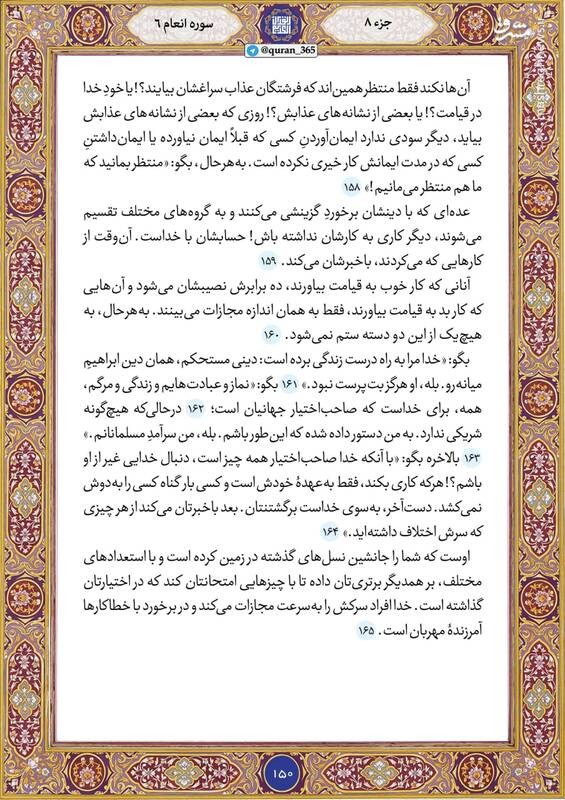 جزء ۸
سوره انعام ۶
@quran_365
مشرق
آن‌ها نکند فقط منتظر همین‌اند که فرشتگان عذاب سراغشان بیایند؟! یا خودِ خدا
در قیامت؟! یا بعضی از نشانه‌های عذابش؟! روزی که بعضی از نشانه‌های عذابش
بیاید، دیگر سودی ندارد ایمان‌آوردنِ کسی که قبلاً ایمان نیاورده یا ایمان‌داشتنِ
کسی که در مدت ایمانش کار خیری نکرده است. به‌هرحال، بگو: «منتظر بمانید که
ما هم منتظر می‌مانیم!» ۱۵۸
عده‌ای که با دینشان برخوردِ گزینشی می‌کنند و به گروه‌های مختلف تقسیم
می‌شوند، دیگر کاری به کارشان نداشته باش! حسابشان با خداست. آن‌وقت از
کارهایی که می‌کردند، باخبرشان می‌کند. ۱۵۹
آنانی که کار خوب به قیامت بیاورند، ده برابرش نصیبشان می‌شود و آن‌هایی
که کار بد به قیامت بیاورند، فقط به همان اندازه مجازات می‌بینند. به‌هرحال، به
هیچ‌یک از این دو دسته ستم نمی‌شود. ۱۶۰
بگو: «خدا مرا به راه درست زندگی برده است: دینی مستحکم، همان دین ابراهیم
میانه‌رو. بله، او هرگز بت‌پرست نبود.» ۱۶۱ بگو: «نماز و عبادت‌هایم و زندگی و مرگم،
همه، برای خداست که صاحب‌اختیار جهانیان است؛ ۱۶۲ درحالی‌که هیچ‌گونه
شریکی ندارد. به من دستور داده شده که این‌طور باشم. بله، من سرآمدِ مسلمانانم.»
۱۶۳ بالاخره بگو: «با آنکه خدا صاحب‌اختیار همه چیز است، دنبال خدایی غیر از او
باشم؟! هرکه کاری بکند، فقط به‌عهدهٔ خودش است و کسی بار گناه کسی را به‌دوش
نمی‌کشد. دست‌آخر، به‌سوی خداست برگشتنتان. بعد باخبرتان می‌کند از هر چیزی
که سرش اختلاف داشته‌اید.» ۱۶۴
اوست که شما را جانشین نسل‌های گذشته در زمین کرده است و با استعدادهای
مختلف، بر همدیگر برتری‌تان داده تا با چیزهایی امتحانتان کند که در اختیارتان
گذاشته است. خدا افراد سرکش را به‌سرعت مجازات می‌کند و در برخورد با خطاکارها
آمرزندهٔ مهربان است. ۱۶۵
۱۵۰